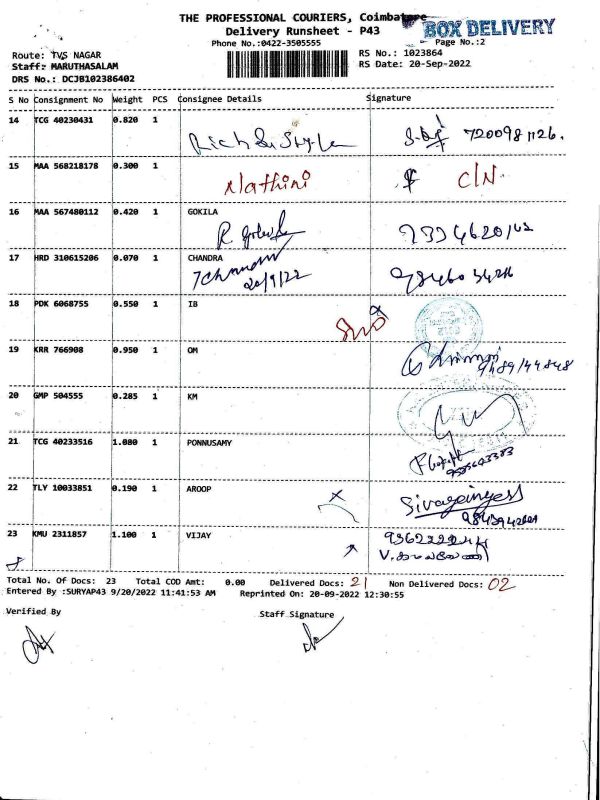 THE PROFESSIONAL COURIERS, Coimbatore
BOX DELIVERY
Delivery Runsheet - P43
Phone No.:0422-3505555
Page No.:2
Route: TVS NAGAR
RS No.: 1023864
Staff: MARUTHASALAM
RS Date: 20-Sep-2022
DRS No.: DCJB102386402
S No Consignment No Weight PCS Consignee Details Signature
14 TCG 40230431 0.820 1 Rich & Style
15 MAA 568218178 0.300 1 Nathini C/N
16 MAA 567480112 0.420 1 GOKILA
17 HRD 310615206 0.070 1 CHANDRA
20/9/22
18 PDK 6068755 0.550 1 IB
19 KRR 766908 0.950 1 OM
9489144848
20 GMP 504555 0.285 1 KM
21 TCG 40233516 1.080 1 PONNUSAMY
22 TLY 10033851 0.190 1 AROOP
23 KMU 2311857 1.100 1 VIJAY
Total No. Of Docs: 23 Total COD Amt: 0.00 Delivered Docs: 21 Non Delivered Docs: 02
Entered By :SURYAP43 9/20/2022 11:41:53 AM Reprinted On: 20-09-2022 12:30:55
Verified By Staff Signature